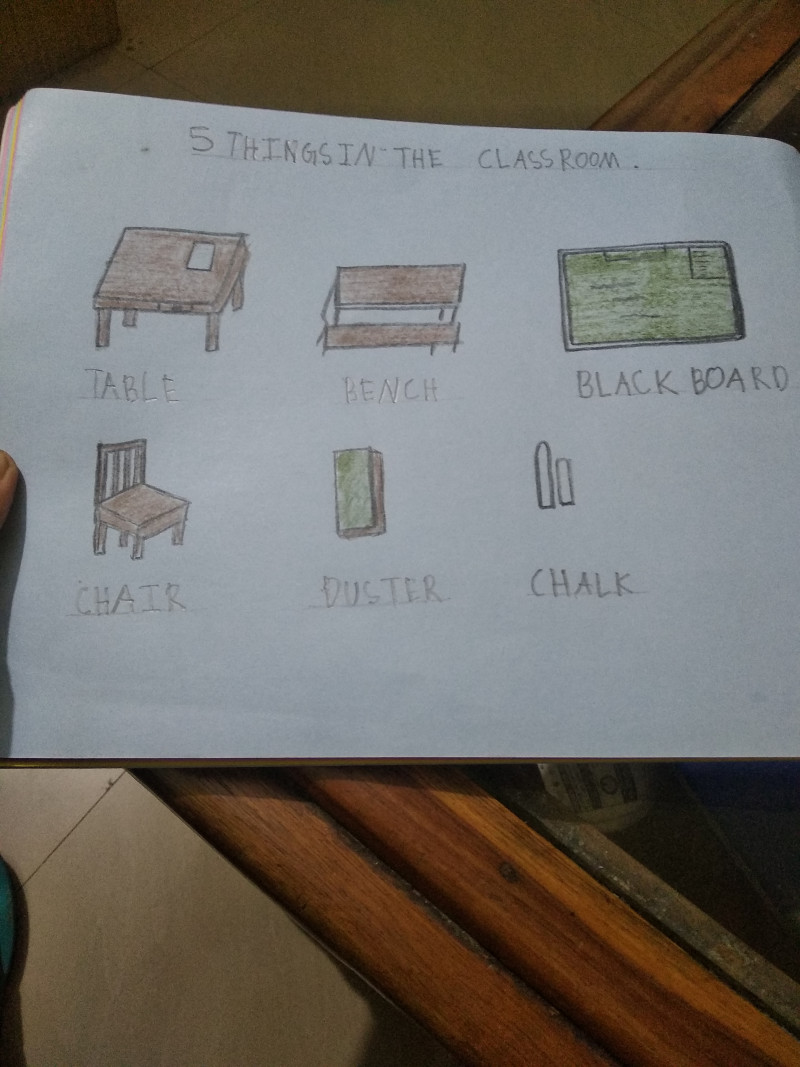 5 THINGS IN THE CLASSROOM.
TABLE
BENCH
BLACK BOARD
CHAIR
DUSTER
CHALK